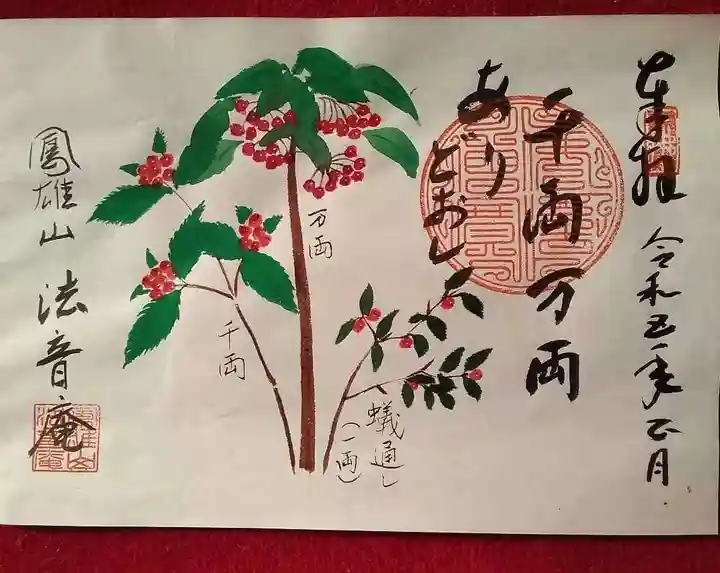 奉拝
令和五年正月
千両万両
あり
どおし
万両
千両
蟻通し
(一両)
鳳雄山 法音庵